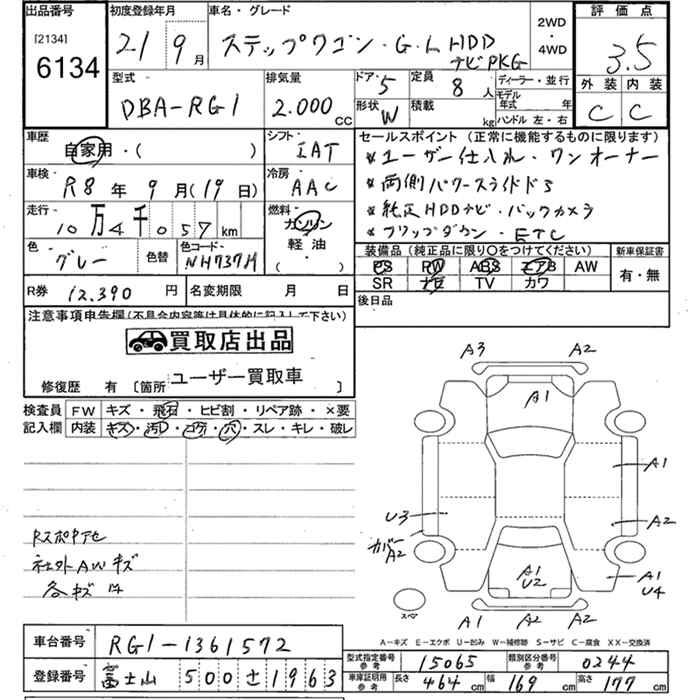 出品番号 初度登録年月 車名・グレード 2WD・4WD 評価点
[2134] 6134 21 9月 ステップワゴン・G・L HDDナビPKG 3.5
型式 排気量 ドア・5 定員 8人 ディーラー・並行 外装 内装
DBA-RG1 2.000cc 形状 W 積載 kg モデル年式 年 ハンドル 左・右 C C
車歴 自家用・( ) シフト IAT セールスポイント (正常に機能するものに限ります)
*ユーザー仕入れ・ワンオーナー
車検 R8年9月(19日) 冷房 AAC *両側パワースライドドア
走行 10万4千057km 燃料 ガソリン・軽油・( ) *純正HDDナビ・バックカメラ
*フリップダウン・ETC
色 グレー 色替 色コード NH737M
装備品(純正品に限り○をつけてください) 新車保証書
PS PW ABS エアB AW 有・無
SR ナビ TV カワ
R券 12.390円 名変期限 月 日 後日品
注意事項申告欄(不具合内容等は具体的に記入して下さい)
買取店出品
修復歴 有 [箇所 ユーザー買取車 ]
検査員記入欄 FW キズ・飛石・ヒビ割・リペア跡・×要
内装 キズ・汚れ・コゲ・穴・スレ・キレ・破レ
A3 A2
A1
A1
U3 A2
カバーA2
A1 U2 A1 U4
スペア A1 A2 A2
社外AWキズ
A-キズ E-エクボ U-凹み W-補修跡 S-サビ C-腐食 XX-交換済
車台番号 RG1-1361572
型式指定番号 参考 15065 類別区分番号 参考 0244
登録番号 富士山 500 さ 1963
車庫証明用 参考 長さ 464cm 幅 169cm 高さ 177cm